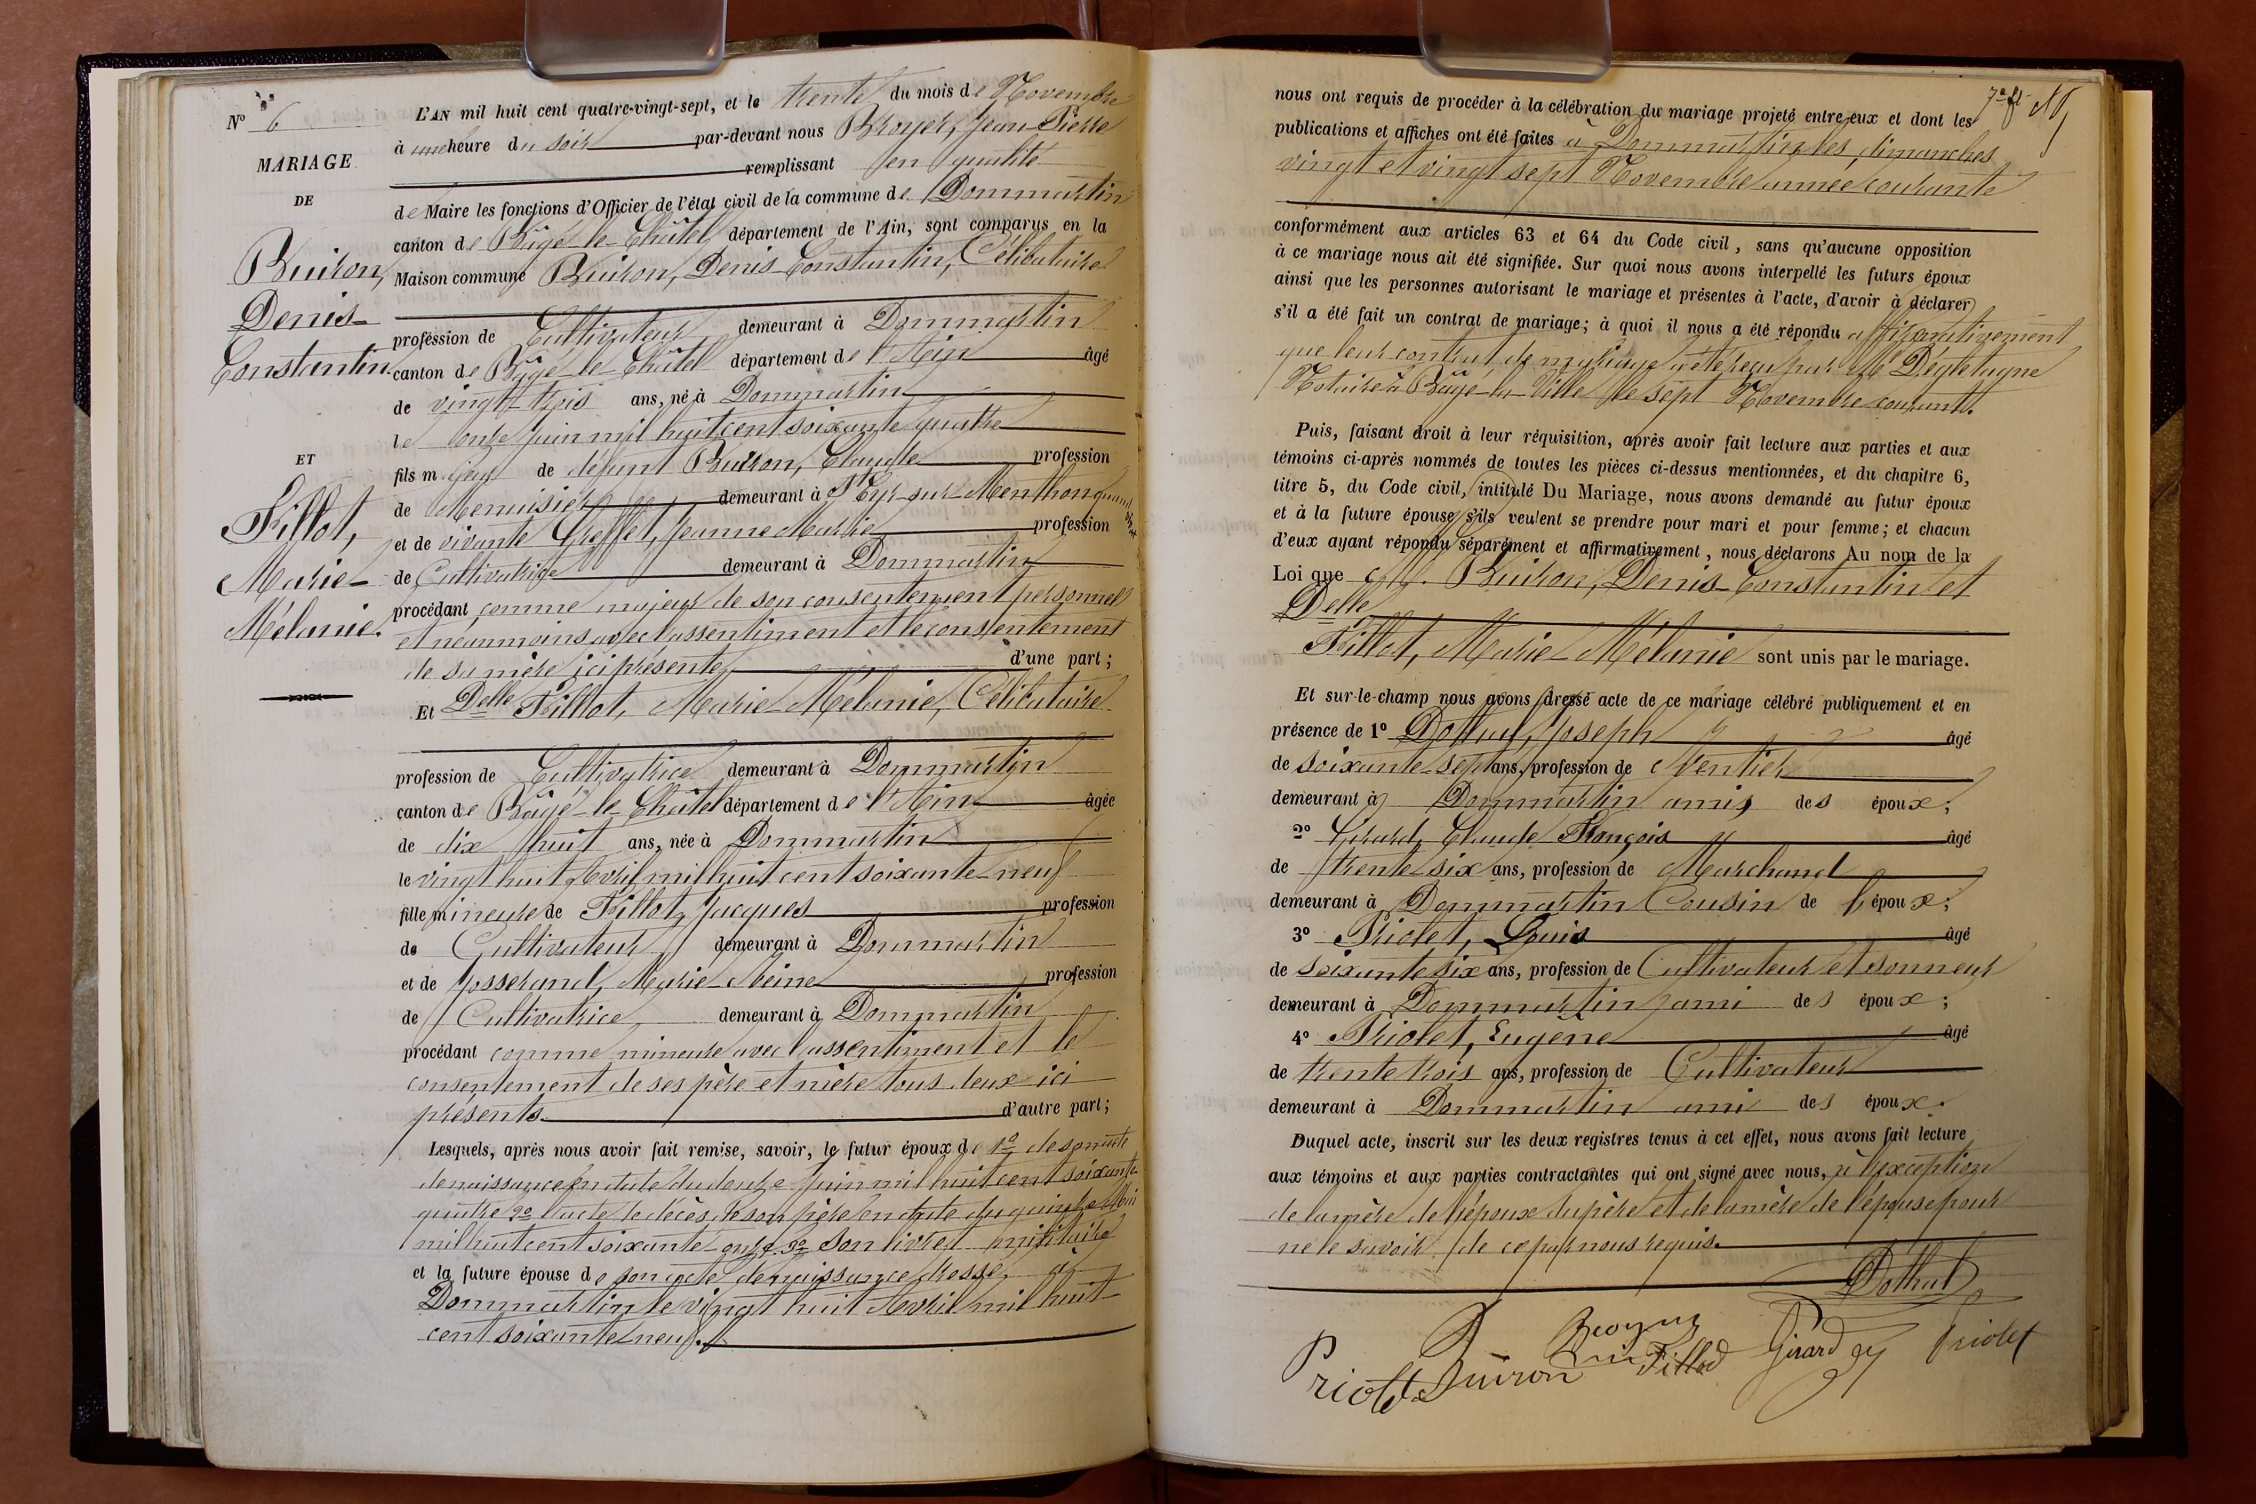 N° 6
MARIAGE
DE
Buiron,
Denis-
Constantin
ET
Fillot,
Marie-
Mélanie.
L'AN mil huit cent quatre-vingt-sept, et le trente du mois de Novembre
à une heure du soir par-devant nous Broyer, Jean-Pierre
remplissant en qualité
de Maire les fonctions d'Officier de l'état civil de la commune de Dommartin
canton de Bâgé-le-Châtel, département de l'Ain, sont comparus en la
Maison commune Buiron, Denis-Constantin, Célibataire
profession de Cultivateur demeurant à Dommartin
canton de Bâgé-le-Châtel département de l'Ain âgé
de vingt-trois ans, né à Dommartin
le onze juin mil huit cent soixante quatre
fils majeur de défunt Buiron, Claude profession
de Menuisier demeurant à St Cyr-sur-Menthon quand
et de vivante Greffet, Jeanne Marie profession
de Cultivatrice demeurant à Dommartin
procédant comme majeur de son consentement personnel
et néanmoins avec l'assentiment et le consentement
de sa mère ici présente d'une part ;
Et Delle Fillot, Marie-Mélanie, Célibataire
profession de Cultivatrice demeurant à Dommartin
canton de Bâgé-le-Châtel département de l'Ain âgée
de dix huit ans, née à Dommartin
le vingt huit Avril mil huit cent soixante-neuf
fille mineure de Fillot, Jacques profession
de Cultivateur demeurant à Dommartin
et de Josserand, Marie-Reine profession
de Cultivatrice demeurant à Dommartin
procédant comme mineure avec l'assentiment et le
consentement de ses père et mère tous deux ici
présents d'autre part ;
Lesquels, après nous avoir fait remise, savoir, le futur époux de 1° de son acte
de naissance en date du douze juin mil huit cent soixante-
quatre 2° l'acte de décès de son père en date du quinze
mil huit cent soixante-onze 3° son livret militaire
et la future épouse de son acte de naissance dressé à
Dommartin le vingt huit Avril mil huit
cent soixante-neuf.
7e ft
nous ont requis de procéder à la célébration du mariage projeté entre eux et dont les
publications et affiches ont été faites à Dommartin les dimanches
vingt et vingt sept Novembre année courante
conformément aux articles 63 et 64 du Code civil, sans qu'aucune opposition
à ce mariage nous ait été signifiée. Sur quoi nous avons interpellé les futurs époux
ainsi que les personnes autorisant le mariage et présentes à l'acte, d'avoir à déclarer
s'il a été fait un contrat de mariage ; à quoi il nous a été répondu affirmativement
que leur contrat de mariage a été reçu par Me Dégletagne
Notaire à Bâgé-la-Ville le sept Novembre courant.
Puis, faisant droit à leur réquisition, après avoir fait lecture aux parties et aux
témoins ci-après nommés de toutes les pièces ci-dessus mentionnées, et du chapitre 6,
titre 5, du Code civil, intitulé Du Mariage, nous avons demandé au futur époux
et à la future épouse s'ils veulent se prendre pour mari et pour femme ; et chacun
d'eux ayant répondu séparément et affirmativement, nous déclarons Au nom de la
Loi que M. Buiron, Denis-Constantin et
Delle
Fillot, Marie-Mélanie sont unis par le mariage.
Et sur-le-champ nous avons dressé acte de ce mariage célébré publiquement et en
présence de 1° Dothal, Joseph âgé
de soixante-sept ans, profession de Rentier
demeurant à Dommartin amis des époux ;
2° Girard, Claude François âgé
de trente-six ans, profession de Marchand
demeurant à Dommartin Cousin de l'époux ;
3° Priolet, Louis âgé
de Soixante six ans, profession de Cultivateur et sonneur
demeurant à Dommartin ami des époux ;
4° Priolet, Eugène âgé
de trente trois ans, profession de Cultivateur
demeurant à Dommartin ami des époux.
Duquel acte, inscrit sur les deux registres tenus à cet effet, nous avons fait lecture
aux témoins et aux parties contractantes qui ont signé avec nous, à l'exception
de la mère de l'époux du père et de la mère de l'épouse pour
ne le savoir de ce par nous requis.
Dothal
Broyer
Priolet Buiron Fillod Girard Priolet